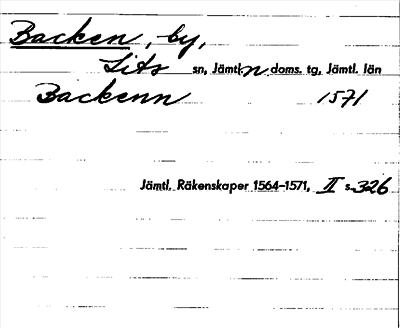 Backen, by,
Lits sn, Jämtl. n doms. tg, Jämtl. län
Backenn 1571
Jämtl. Räkenskaper 1564-1571, II s. 326